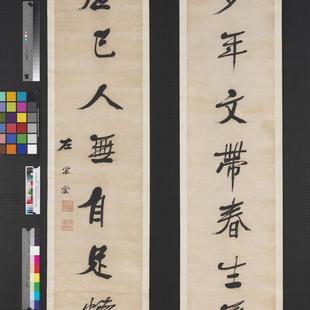 年文帶春生
己人無自足
左宗棠